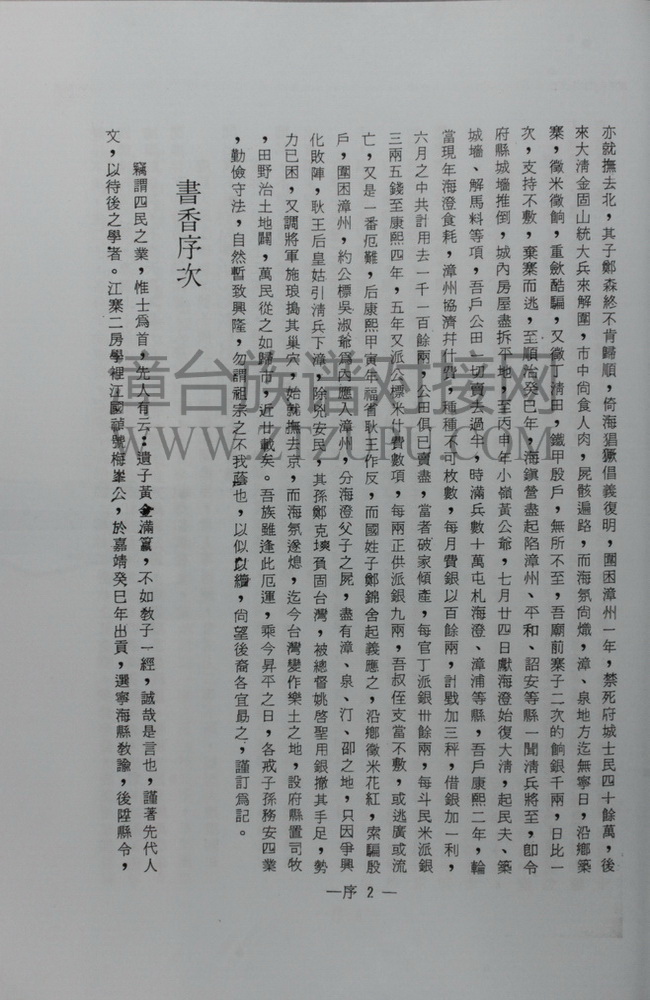 亦就撫去北，其子鄭森終不肯歸順，倚海猖獗倡義復明，圍困漳州一年，禁死府城士民四十餘萬，後
來大清金固山統大兵來解圍，市中尙食人肉，屍骸遍路，而海氛尙熾，漳、泉地方迄無寧日，沿鄉築
寨，徵米徵餉，重歛酷騙，又徵丁淸田，鐵甲殷戶，無所不至，吾廟前寨子二次的餉銀千兩，日比一
次，支持不敷，棄寨而逃，至順治癸巳年，海鎭營盡起陷漳州、平和、詔安等縣一聞淸兵將至，卽令
府縣城墻推倒，城內房屋盡拆平地，至丙申年小嶺黃公爺，七月廿四日獻海澄始復大淸，起民夫、築
城墻、解馬料等項，吾戶公田一切賣去過半，時滿兵數十萬屯札海澄、漳浦等縣，吾戶康熙二年，輪
當現年海澄食耗，漳州協濟幷什費，種種不可枚數，每月費銀以百餘兩，計戥加三秤，借銀加一利，
六月之中共計用去一千一百餘兩，公田俱已賣盡，當者破家傾產，每官丁派銀卅餘兩，每斗民米派銀
三兩五錢至康熙四年，五年又派公標米什費數項，每兩正供派銀九兩，吾叔侄支當不敷，或逃廣或流
亡，又是一番厄難，后康熙甲寅年福省耿王作反，而國姓子鄭錦舍起義應之，沿鄉徵米花紅，索騙殷
戶，圍困漳州，約公標吳淑爺爲內應入漳州，分海澄父子之屍，盡有漳、泉、汀、邵之地，只因爭興
化敗陣，耿王后皇姑引淸兵下漳，除兇安民，其孫鄭克塽負固台灣，被總督姚啓聖用銀撤其手足，勢
力已困，又調將軍施琅搗其巢穴，始就撫去京，而海氛遂熄，迄今台灣變作樂土之地，設府縣置司牧
，田野治土地闢，萬民從之如歸市，近廿載矣。吾族雖逢此厄運，乘今昇平之日，各戒子孫務安四業
，勤儉守法，自然暫致興隆，勿謂祖宗之不我蔭也，以似以續，尙望後裔各宜勗之，謹訂爲記。
書香序次
竊謂四民之業，惟士爲首，先人有云：遺子黃金滿籯，不如敎子一經，誠哉是言也，謹著先代人
文，以待後之學者。江寨二房學裡江國禎號梅峯公，於嘉靖癸巳年出貢，選寧海縣敎諭，後陞縣令，
—序 2 —
章台族谱对接网
WWW.ZTZUPU.COM